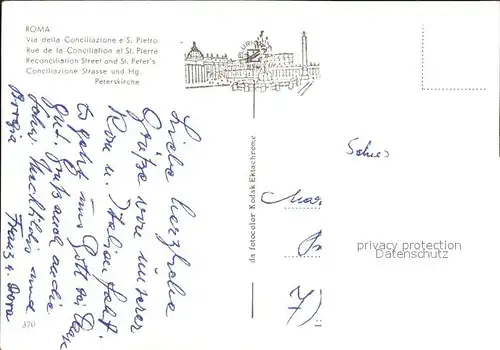 ROMA
Via della Conciliazione e S. Pietro
Rue de la Conciliation et St. Pierre
Reconciliation Street and St. Peter's
Conciliazione Strasse und Hg.
Peterskirche
EUROPHOT
Liebe herzliche
Grüße von unserer
Rom u. Italienfahrt.
Es geht uns Gott sei Dank
gut. Gruß auch an die
Schw. Mechthildis und
Borgia
Franz u. Dora
370
da fotocolor Kodak Ektachrome
Schwes
privacy protection
Datenschutz
7)